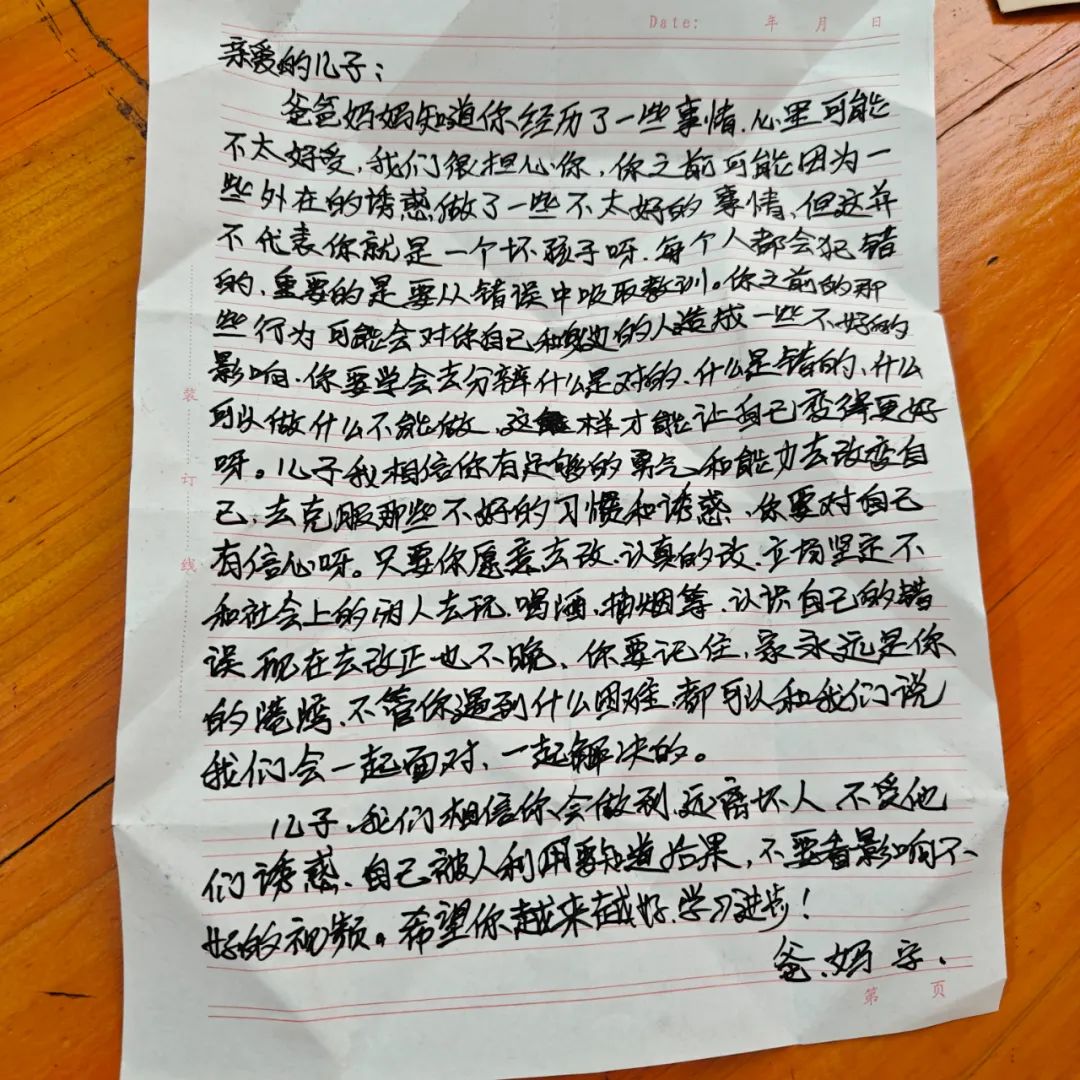 Date: 年 月 日
亲爱的儿子：
爸爸妈妈知道你经历了一些事情、心里可能
不太好受，我们很担心你，你之前可能因为一
些外在的诱惑做了一些不太好的事情、但这并
不代表你就是一个坏孩子呀、每个人都会犯错
的、重要的是要从错误中吸取教训。你之前的那
些行为可能会对你自己和身边的人造成一些不好的
影响、你要学会去分辨什么是对的、什么是错的、什么
可以做什么不能做、这样才能让自己变得更好
呀。儿子我相信你有足够的勇气和能力去改变自
己、去克服那些不好的习惯和诱惑、你要对自己
有信心呀。只要你愿意去改、认真的改、立场坚定不
和社会上的闲人去玩、喝酒、抽烟等、认识自己的错
误现在去改正也不晚、你要记住，家永远是你
的港湾、不管你遇到什么困难、都可以和我们说
我们会一起面对、一起解决的。
儿子、我们相信你会做到、远离坏人 不受他
们诱惑、自己被人利用要知道后果，不要看影响不
好的视频。希望你越来越好 学习进步！
爸、妈 字、
第 页
装
订
线